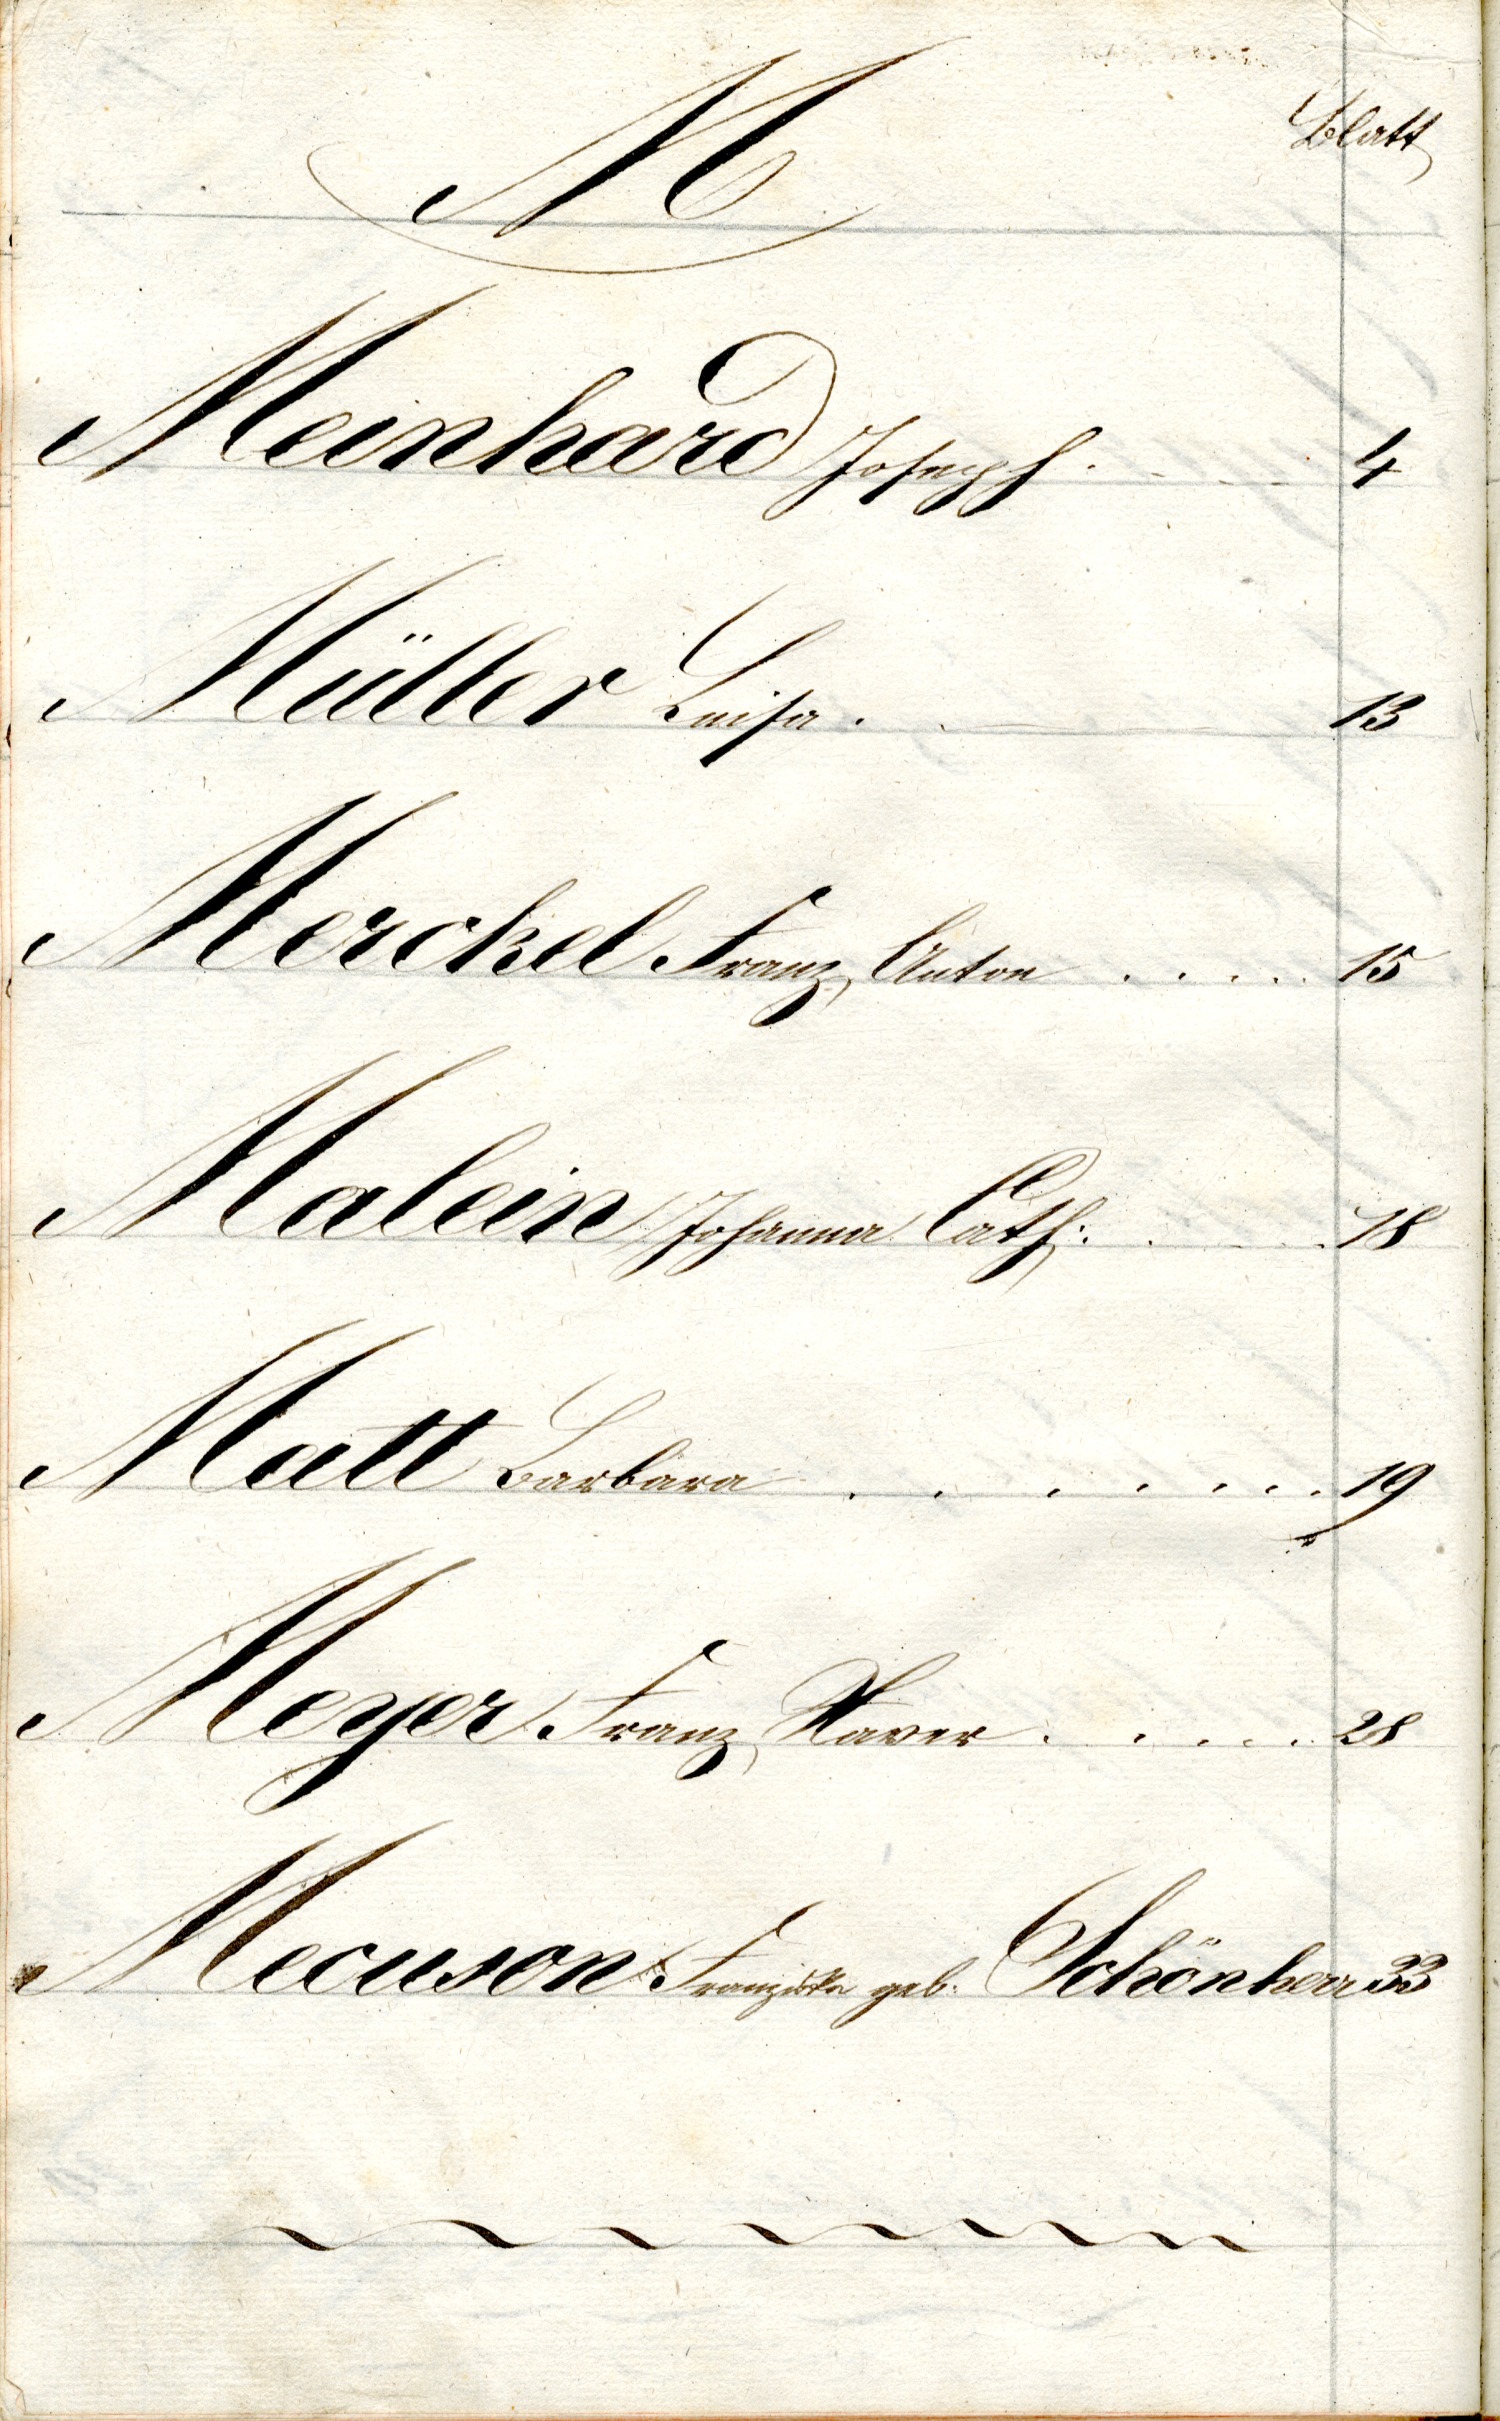 Blatt
M
Meinhard Joseph . - - - 4
Müller Luisa . - 13
Merckel Franz Anton . . . . . 15
Malein Johanna Cath: . . . 18
Matt Barbara . . . . . . . . 19
Meyer Franz Xaver . . . . . 28
Mecuson Franziska geb: Schönherr 33